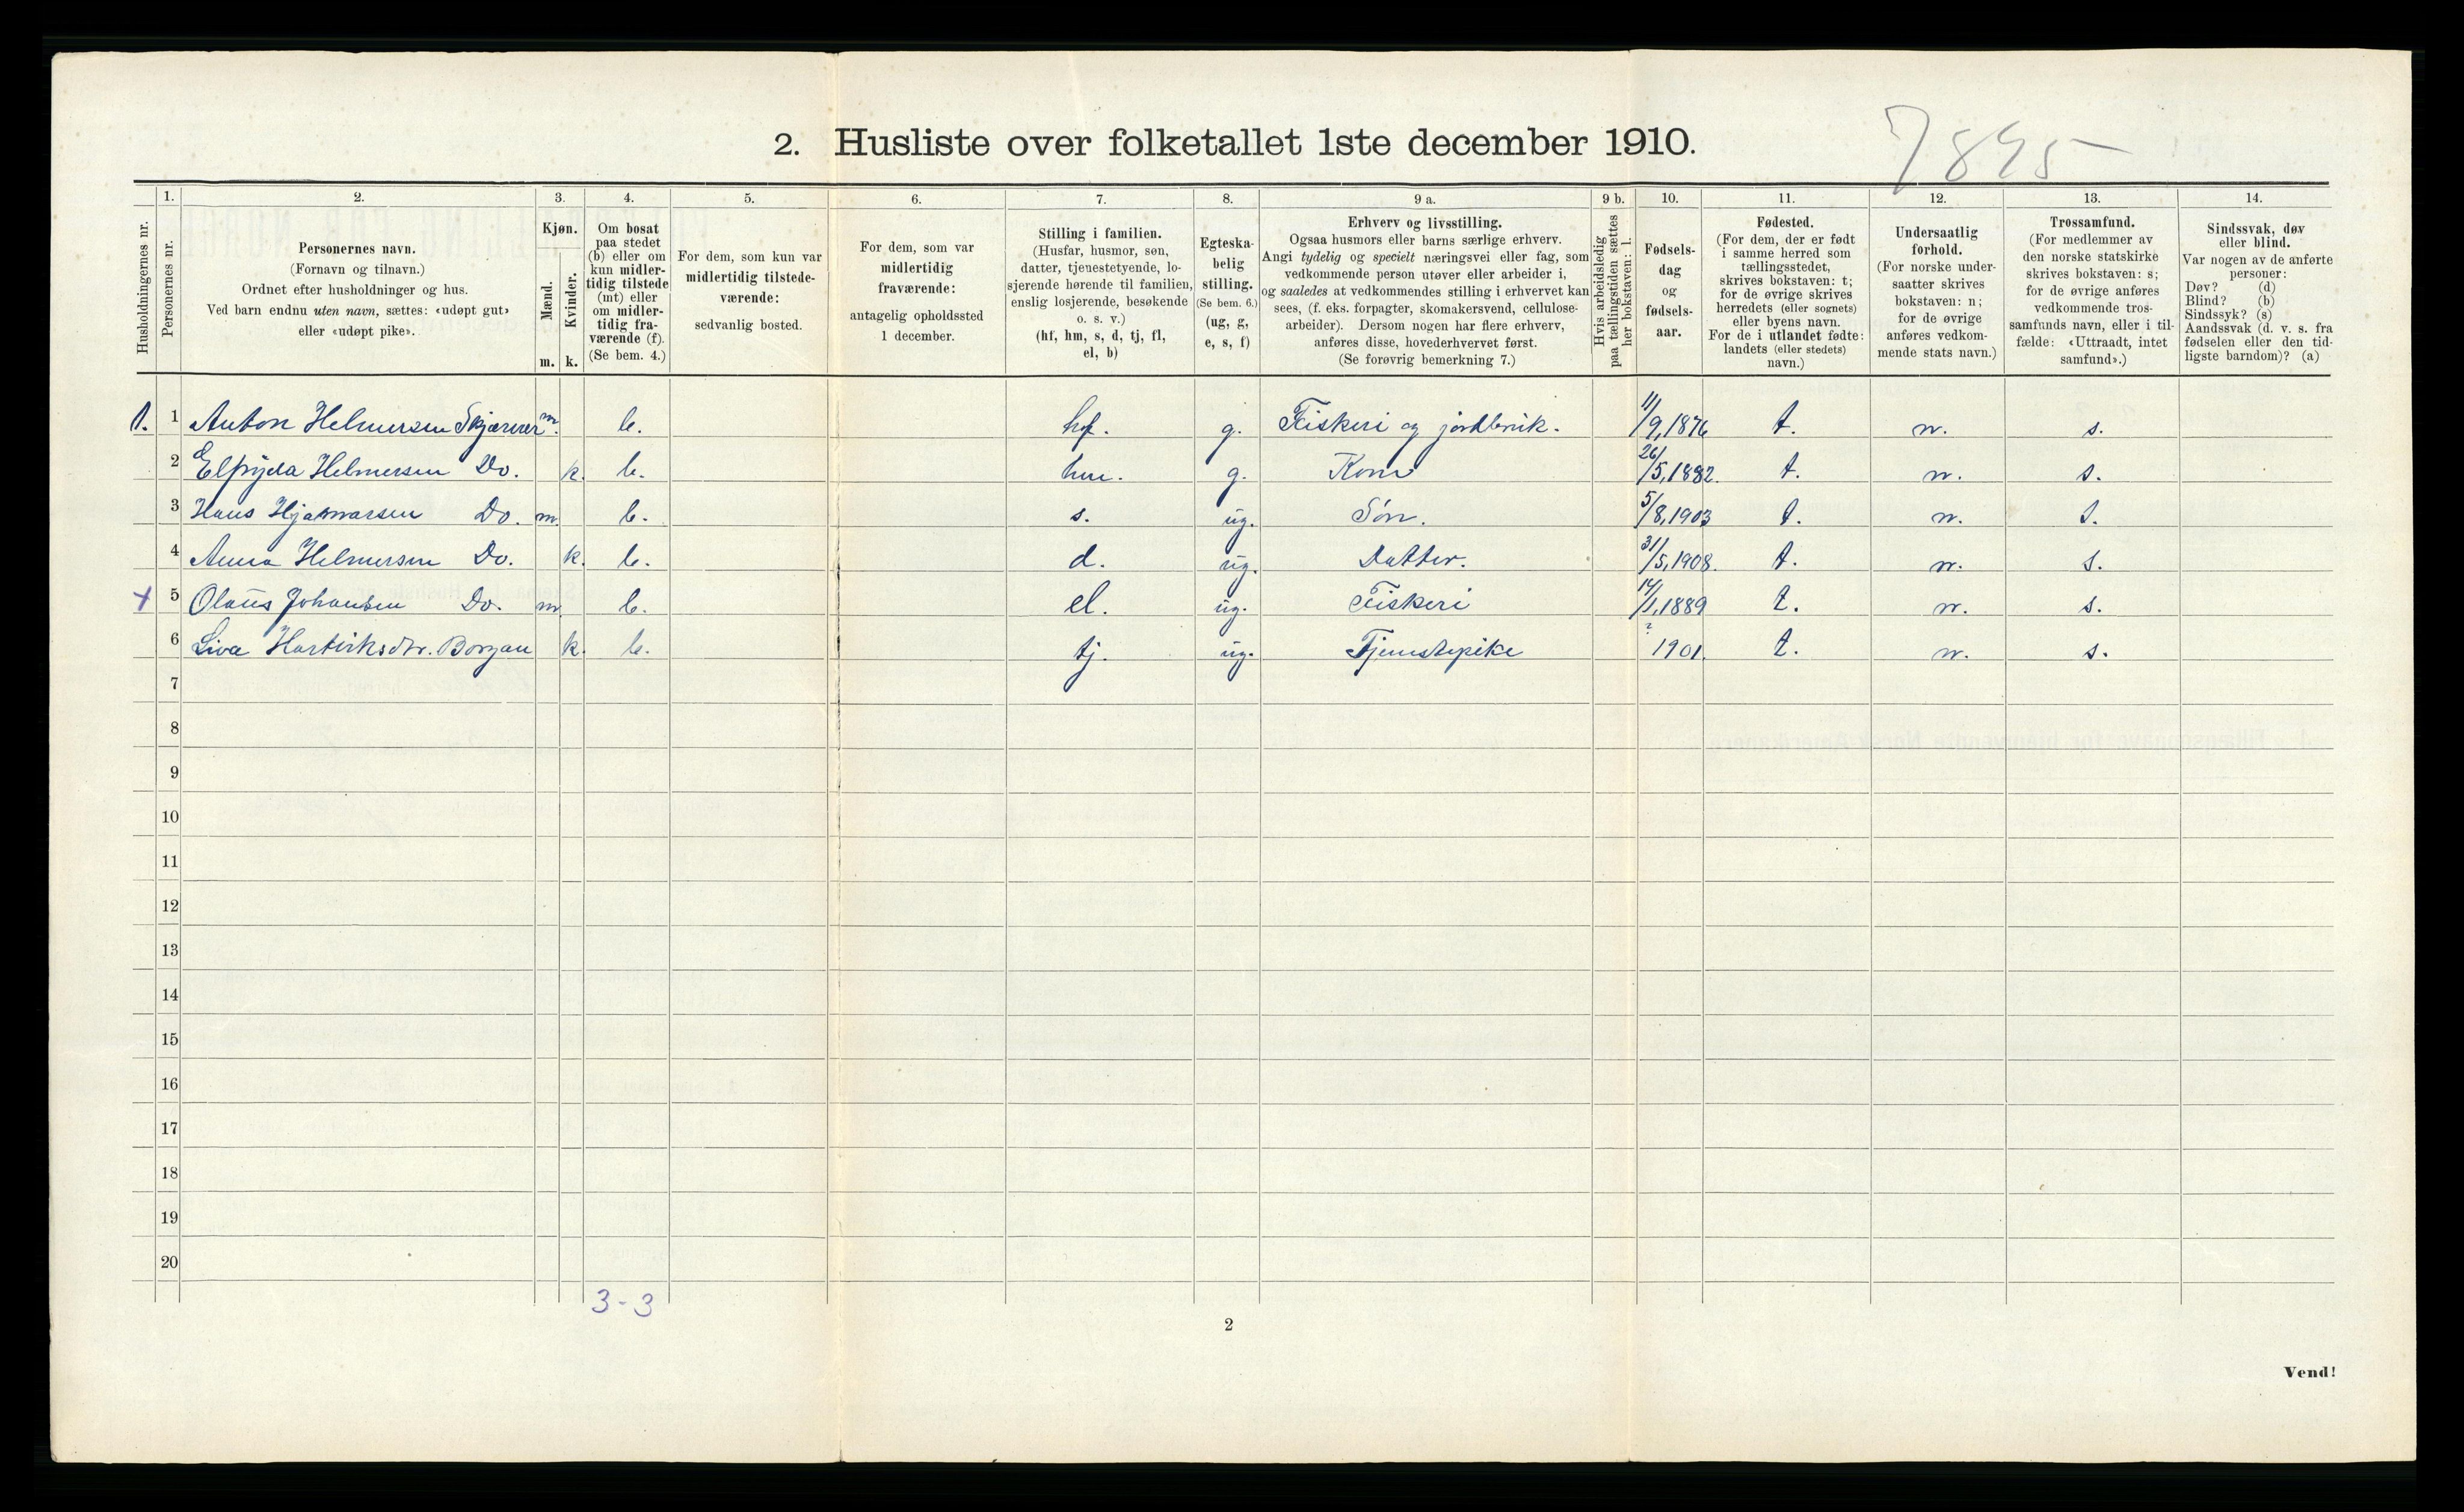 2. Husliste over folketallet 1ste december 1910.
7895
Husholdningernes nr.
1.
Personernes nr.
2.
Personernes navn.
(Fornavn og tilnavn.)
Ordnet efter husholdninger og hus.
Ved barn endnu uten navn, sættes: «udøpt gut»
eller «udøpt pike».
3.
Kjøn.
Mænd.
Kvinder.
m. k.
4.
Om bosat
paa stedet
(b) eller om
kun midler-
tidig tilstede
(mt) eller
om midler-
tidig fra-
værende (f).
(Se bem. 4.)
5.
For dem, som kun var
midlertidig tilstede-
værende:
sedvanlig bosted.
6.
For dem, som var
midlertidig
fraværende:
antagelig opholdssted
1 december.
7.
Stilling i familien.
(Husfar, husmor, søn,
datter, tjenestetyende, lo-
sjerende hørende til familien,
enslig losjerende, besøkende
o. s. v.)
(hf, hm, s, d, tj, fl,
el, b)
8.
Egteska-
belig
stilling.
(Se bem. 6.)
(ug, g,
e, s, f)
9 a.
Erhverv og livsstilling.
Ogsaa husmors eller barns særlige erhverv.
Angi tydelig og specielt næringsvei eller fag, som
vedkommende person utøver eller arbeider i,
og saaledes at vedkommendes stilling i erhvervet kan
sees, (f. eks. forpagter, skomakersvend, cellulose-
arbeider). Dersom nogen har flere erhverv,
anføres disse, hovederhvervet først.
(Se forøvrig bemerkning 7.)
9 b.
Hvis arbeidsledig
paa tællingstiden sættes
her bokstaven: l.
10.
Fødsels-
dag
og
fødsels-
aar.
11.
Fødested.
(For dem, der er født
i samme herred som
tællingsstedet,
skrives bokstaven: t;
for de øvrige skrives
herredets (eller sognets)
eller byens navn.
For de i utlandet fødte:
landets (eller stedets)
navn.)
12.
Undersaatlig
forhold.
(For norske under-
saatter skrives
bokstaven: n;
for de øvrige
anføres vedkom-
mende stats navn.)
13.
Trossamfund.
(For medlemmer av
den norske statskirke
skrives bokstaven: s;
for de øvrige anføres
vedkommende tros-
samfunds navn, eller i til-
fælde: «Uttraadt, intet
samfund».)
14.
Sindssvak, døv
eller blind.
Var nogen av de anførte
personer:
Døv? (d)
Blind? (b)
Sindssyk? (s)
Aandssvak (d. v. s. fra
fødselen eller den tid-
ligste barndom)? (a)
1. 1 Anton Helmersen m. b. hf. g. Fiskeri og jordbruk. 11/9, 1876 t. n. s.
2 Helmersen Do. k. b. hm. g. Kone 26/5, 1882. t. n. s.
3 Hans Hjalmarsen Do. m. b. s. ug. Søn. 5/8, 1903 t. n. s.
4 Anna Helmersen Do. k. b. d. ug. Datter. 31/5, 1908. t. n. s.
x 5 Olaus Johansen Do. m. b. el. ug. Fiskeri 14/1, 1889 t. n. s.
6 k. b. tj. ug. Tjenestepike ? 1901. t. n. s.
7
8
9
10
11
12
13
14
15
16
17
18
19
20
3-3
2
Vend!